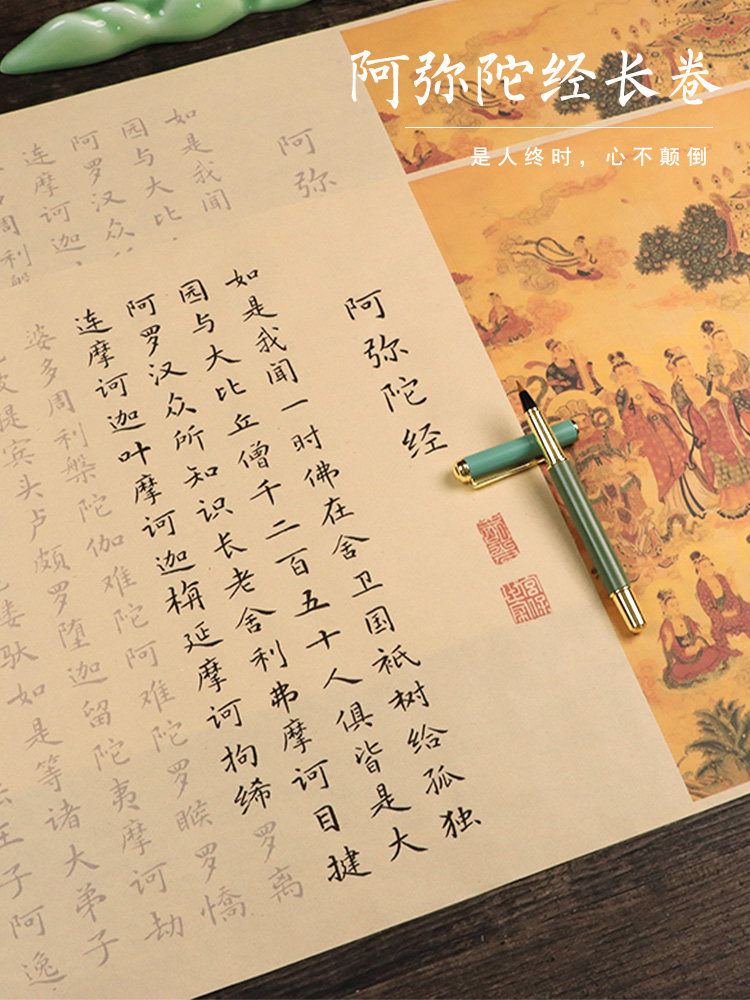 阿弥陀经长卷
是人终时，心不颠倒
阿弥
如是我闻
园与大比
阿罗汉众
连摩诃迦
多周利
阿弥陀经
如是我闻一时佛在舍卫国祇树给孤独
园与大比丘僧千二百五十人俱皆是大
阿罗汉众所知识长老舍利弗摩诃目揵
连摩诃迦叶摩诃迦栴延摩诃拘絺罗离
婆多周利槃陀伽难陀阿难陀罗睺罗憍
提宾头卢颇罗堕迦留陀夷摩诃劫
驮如是等诸大弟子
王子阿逸